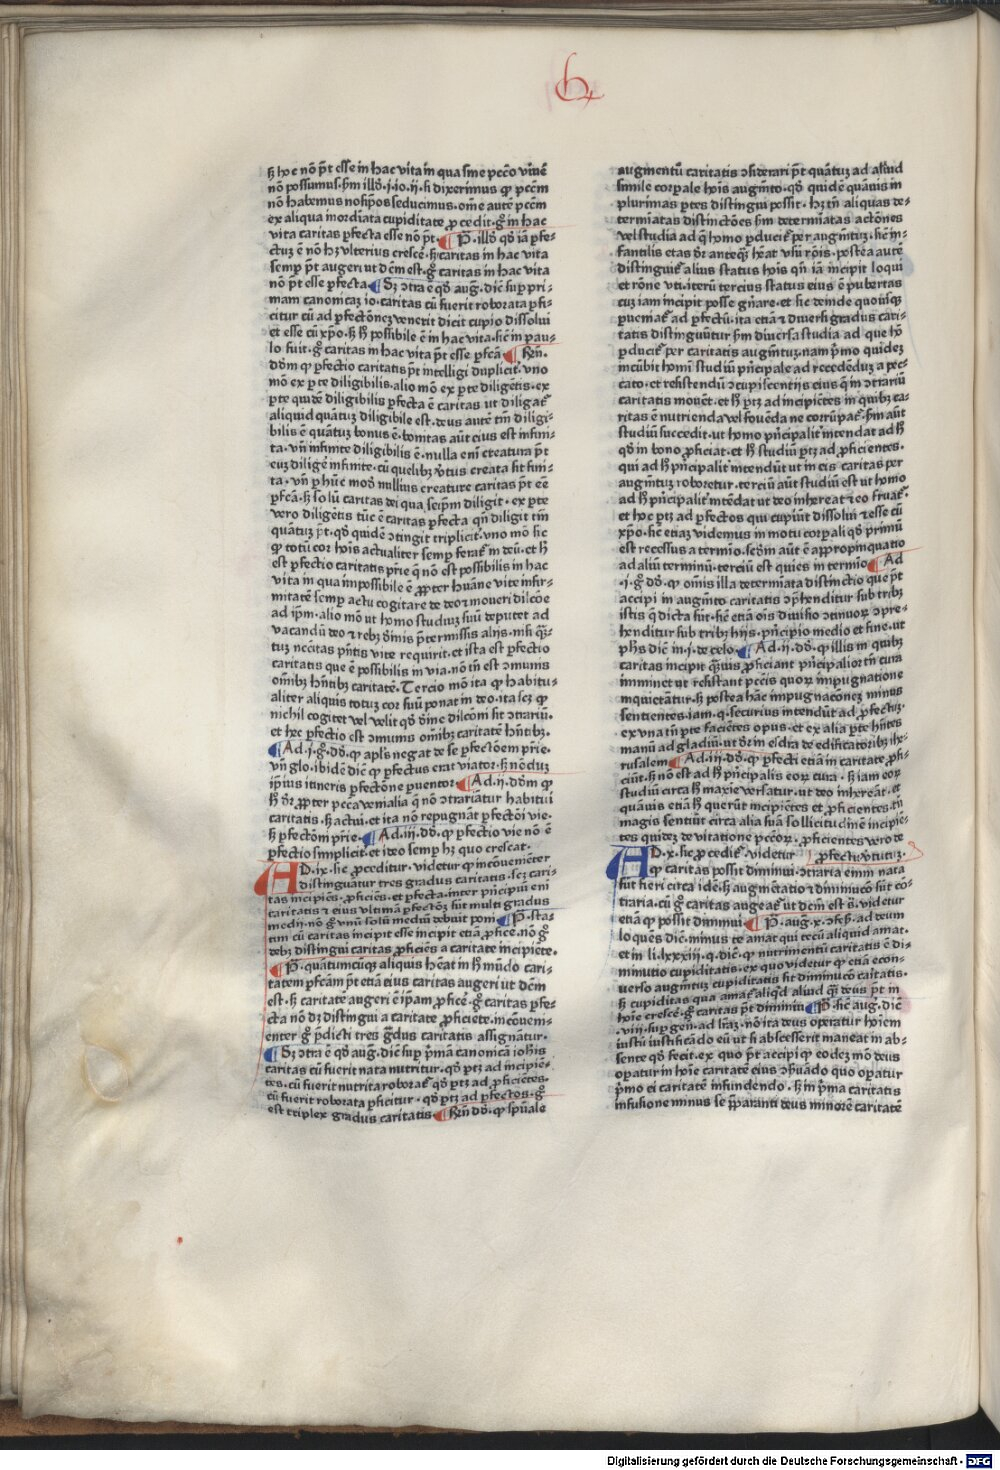 ꝯ
ẜ hoc nō pt̄ esse in hac vita in qua sine pctō viuē
nō possumus. ẜm illđ. j. io. ij. si dixerimus qꝫ pctm̄
nō habemus nosip̄os seducimus. om̄e autē pctm̄
ex aliqua inordīata cupiditate ꝓcedit. gͦ in hac
vita caritas ꝑfecta esse nō pt̄. P̄. illđ qđ iā ꝑfe-
ctuꝫ ē nō hꝫ vlterius crescē. sꝫ caritas in hac vita
semꝑ pt̄ augeri ut dc̄m est. gͦ caritas in hac vita
nō pt̄ esse ꝑfecta. Sꝫ ꝯtra ē qđ aug. dic̄ suꝑ pri-
mam canonicaꝫ io. caritas cū fuerit roborata ꝑfi-
citur cū ad ꝑfectōneꝫ venerit dicit cupio dissolui
et esse cū xp̄o. sꝫ ħ possibile ē in hac vita. sic̄ in pau-
lo fuit. gͦ caritas in hac vita pt̄ esse ꝑfc̄a. Rn̄.
dđm qꝫ ꝑfectio caritatis pt̄ intelligi dupliciṫ. vno
mō ex ꝑte diligibilis. alio mō ex ꝑte diligētis. ex
ꝑte quidē diligibilis ꝑfecta ē caritas ut diligaṫ
aliquid quātuꝫ diligibile est. deus autē tm̄ diligi-
bilis ē quātuꝫ bonus ē. bonitas aūt eius est infini-
ta. vn̄ infinite diligibilis ē. nulla eni creatura pt̄
euꝫ diligē infinite. cū quelibꝫ v̓tus creata sit fini-
ta. vn̄ ꝑ hūc modū nullius creature caritas pt̄ eē
ꝑfc̄a. sꝫ solū caritas dei qua seip̄m diligit. ex ꝑte
vero diligētis tūc ē caritas ꝑfecta qn̄ diligit tm̄
quātuꝫ pt̄. qđ quidē ꝯtingit tripliciṫ. vno mō sic
qꝫ totū cor hoīs actualiter semꝑ feraṫ in deū. et ħ
est ꝑfectio caritatis pr̄ie q̄ nō est possibilis in hac
vita in qua impossibile ē ꝓpter huāne vite infir-
mitatē semꝑ actu cogitare de deo ⁊ moueri dilc̄oē
ad ip̄m. alio mō ut homo studiuꝫ suū deputet ad
vacandū deo ⁊ rebꝫ diuinis p̄termissis alijs. nisi q̄ꝫ-
tuꝫ nc̄citas pn̄tis vite requirit. et ista est ꝑfectio
caritatis que ē possibilis in via. nō tn̄ est ꝯmunis
om̄ibꝫ hn̄tibꝫ caritatē. Tercio mō ita qꝫ habitu-
aliter aliquis totuꝫ cor suū ponat in deo. ita scꝫ qꝫ
nichil cogitet vel velit qđ diuīe dilc̄oni sit ꝯtrariū.
et hec ꝑfectio est ꝯmunis om̄ibꝫ caritatē hn̄tibꝫ.
Ad. j. gͦ. dđ. qꝫ apl̄s negat de se ꝑfectōem pr̄ie.
vn̄ glo. ibidē dic̄ qꝫ ꝑfectus erat viator. sꝫ nōduꝫ
ip̄ius itineris ꝑfectōne ꝑuentor. Ad. ij. dđm qꝫ
ħ dr̄ ꝓpter pcca venialia q̄ nō ꝯtrariātur habitui
caritatis. sꝫ actui. et ita nō repugnāt ꝑfectōi vie.
sꝫ ꝑfectōni pr̄ie. Ad. iij. dđ. qꝫ ꝑfectio vie nō ē
ꝑfectio simpliciṫ. et ideo semꝑ hꝫ quo crescat.
AD. ix. sic ꝓceditur. videtur qꝫ incōueniēter
distinguātur tres gradus caritatis. scꝫ cari-
tas incipiēs. ꝓficiēs. et ꝑfecta. inter pn̄cipiū eni
caritatis ⁊ eius vltimā ꝑfectōeꝫ sūt multi gradus
medij. nō gͦ vnū solū mediū debuit poni. P̄. sta-
tim cū caritas incipit esse incipit etiā ꝓficē. nō gͦ
debꝫ distingui caritas ꝓficiēs a caritate incipiēte.
P̄. quātumcūqꝫ aliquis heāt in ħ mūdo cari-
tatem ꝑfc̄am pt̄ etiā eius caritas augeri ut dc̄m
est. sꝫ caritatē augeri ē ip̄am ꝓficē. gͦ caritas ꝑfe-
cta nō dꝫ distingui a caritate ꝓficiēte. incōueni-
enter gͦ p̄dicti tres gͣdus caritatis assignātur.
Sꝫ ꝯtra ē qđ aug. dic̄ suꝑ p̄mā canonicā ioh̄is
caritas cū fuerit nata nutritur. qđ ꝑtꝫ ad incipiē-
tes. cū fuerit nutrita roboraṫ. qđ ꝑtꝫ ad ꝓficiētes.
cū fuerit roborata ꝑficitur. qđ ꝑtꝫ ad ꝑfectos. gͦ
est triplex gradus caritatis. Rn̄. dđ. qꝫ spūale
augmentū caritatis ꝯsiderari pt̄ quātuꝫ ad aliud
simile corꝑale hoīs augm̄to. qđ quidē quāuis in
plurimas ꝑtes distingui possit. hꝫ tn̄ aliquas de-
termiātas distinctōes ẜm determiātas actōnes
vel studia ad q̄ homo ꝑduciṫ per augm̄tuꝫ. sic̄ in-
fantilis etas dr̄ anteqꝫ hēat vsū rōnis. postea autē
distinguiṫ alius status hoīs qn̄ iā incipit loqui
et rōne vti. iterū tercius status eius ē pubertas
cuꝫ iam incipit posse gn̄are. et sic deinde quousqꝫ
ꝑueniaṫ ad ꝑfectū. ita etiā ⁊ diuersi gradus cari-
tatis distinguūtur ẜm diuersa studia ad que hō
ꝑduciṫ per caritatis augm̄tuꝫ. nam p̄mo quideꝫ
incūbit homī studiū pn̄cipale ad recedenduꝫ a pec-
cato. et resistendū ꝯcupiscentijs eius q̄ in ꝯtrariū
caritatis mouēt. et ħ ꝑtꝫ ad incipiētes in quibꝫ ca-
ritas ē nutrienda vel fouēda ne corrūpaṫ. ẜm aūt
studiū succedit. ut homo pn̄cipaliṫ intendat ad ħ
qđ in bono ꝓficiat. et ħ studiū ꝑtꝫ ad ꝓficientes.
qui ad ħ pn̄cipaliṫ intendūt ut in eis caritas per
augm̄tuꝫ roboretur. terciū aūt studiū est ut homo
ad ħ pn̄cipaliṫ intēdat ut deo inhereat ⁊ eo fruaṫ.
et hoc ꝑtꝫ ad ꝑfectos qui cupiūt dissolui ⁊ esse cū
xp̄o. sic̄ etiaꝫ videmus in motu corꝑali qđ primū
est recessus a termio. secūm aūt ē appropinquatio
ad aliū terminū. terciū est quies in termio. Ad
. j. gͦ dđ. qꝫ om̄is illa determiata distinctio que pt̄
accipi in augm̄to caritatis ꝯp̄henditur sub tribꝫ
istis q̄ dicta sūt. sic̄ etiā oīs diuisio ꝯtinuoꝝ ꝯpre-
henditur sub tribꝫ hijs. pn̄cipio medio et fine. ut
ph̄s dic̄ in. j. de celo. Ad. ij. dđ. qꝫ illis in quibꝫ
caritas incipit quāuis ꝓficiant pn̄cipalior tn̄ cura
imminet ut resistant pctis quoꝝ impugnatione
inquietātur. sꝫ postea hāc impugnacōneꝫ minus
sentientes. iam. q. securius intendūt ad ꝓfectuꝫ.
ex vna tn̄ ꝑte faciētes opus. et ex alia ꝑte hn̄tes
manū ad gladiū. ut dr̄ in esdra de edificatoribꝫ ihe-
rusalem. Ad. iij. dđ. qꝫ ꝑfecti etiā in caritate ꝓfi-
ciūt. sꝫ nō est ad ħ pn̄cipalis eoꝝ cura. sꝫ iam eoꝝ
studiū circa ħ maxie versatur. ut deo inhereāt. et
quāuis etiā ħ querūt incipiētes et ꝓficientes. tn̄
magis sentiūt circa alia suā sollicitudinē incipiē-
tes quideꝫ de vitatione pctōꝝ. ꝓficientes vero de
AD. x. sic ꝓcediṫ. videtur ꝓfectu v̓tutuꝫ.
qꝫ caritas possit diminui. ꝯtraria enim nata
sūt fieri circa ideꝫ. sꝫ augmētatio ⁊ diminucō sūt cō-
traria. cū gͦ caritas augeaṫ ut dc̄m est s̄. videtur
etiā qꝫ possit diminui. P̄. aug. x. ꝯfess. ad deum
loquēs dic̄. minus te amat qui tecū aliquid amat.
et in li. lxxxiij. q. dic̄. qꝫ nutrimentū caritatis ē di-
minutio cupiditatis. ex quo videtur qꝫ etiā econ-
uerso augm̄tuꝫ cupiditatis sit diminucō caritatis.
sꝫ cupiditas qua amaṫ aliqd aliud q̄ꝫ deus pt̄ in
hoīe crescē. gͦ caritas pt̄ diminui. P̄. sic̄ aug. dic̄
. viij. suꝑ gen. ad lr̄aꝫ. nō ita deus operatur hoīem
iustū iustificādo eū ut si abscesserit maneat in ab-
sente qđ fecit. ex quo pt̄ accipi qꝫ eodeꝫ mō deus
oꝑatur in hoīe caritatē eius ꝯseruādo quo oꝑatur
p̄mo ei caritatē infundendo. sꝫ in p̄ma caritatis
infusione minus se p̄paranti deus minorē caritatē
Digitalisierung gefördert durch die Deutsche Forschungsgemeinschaft - DFG